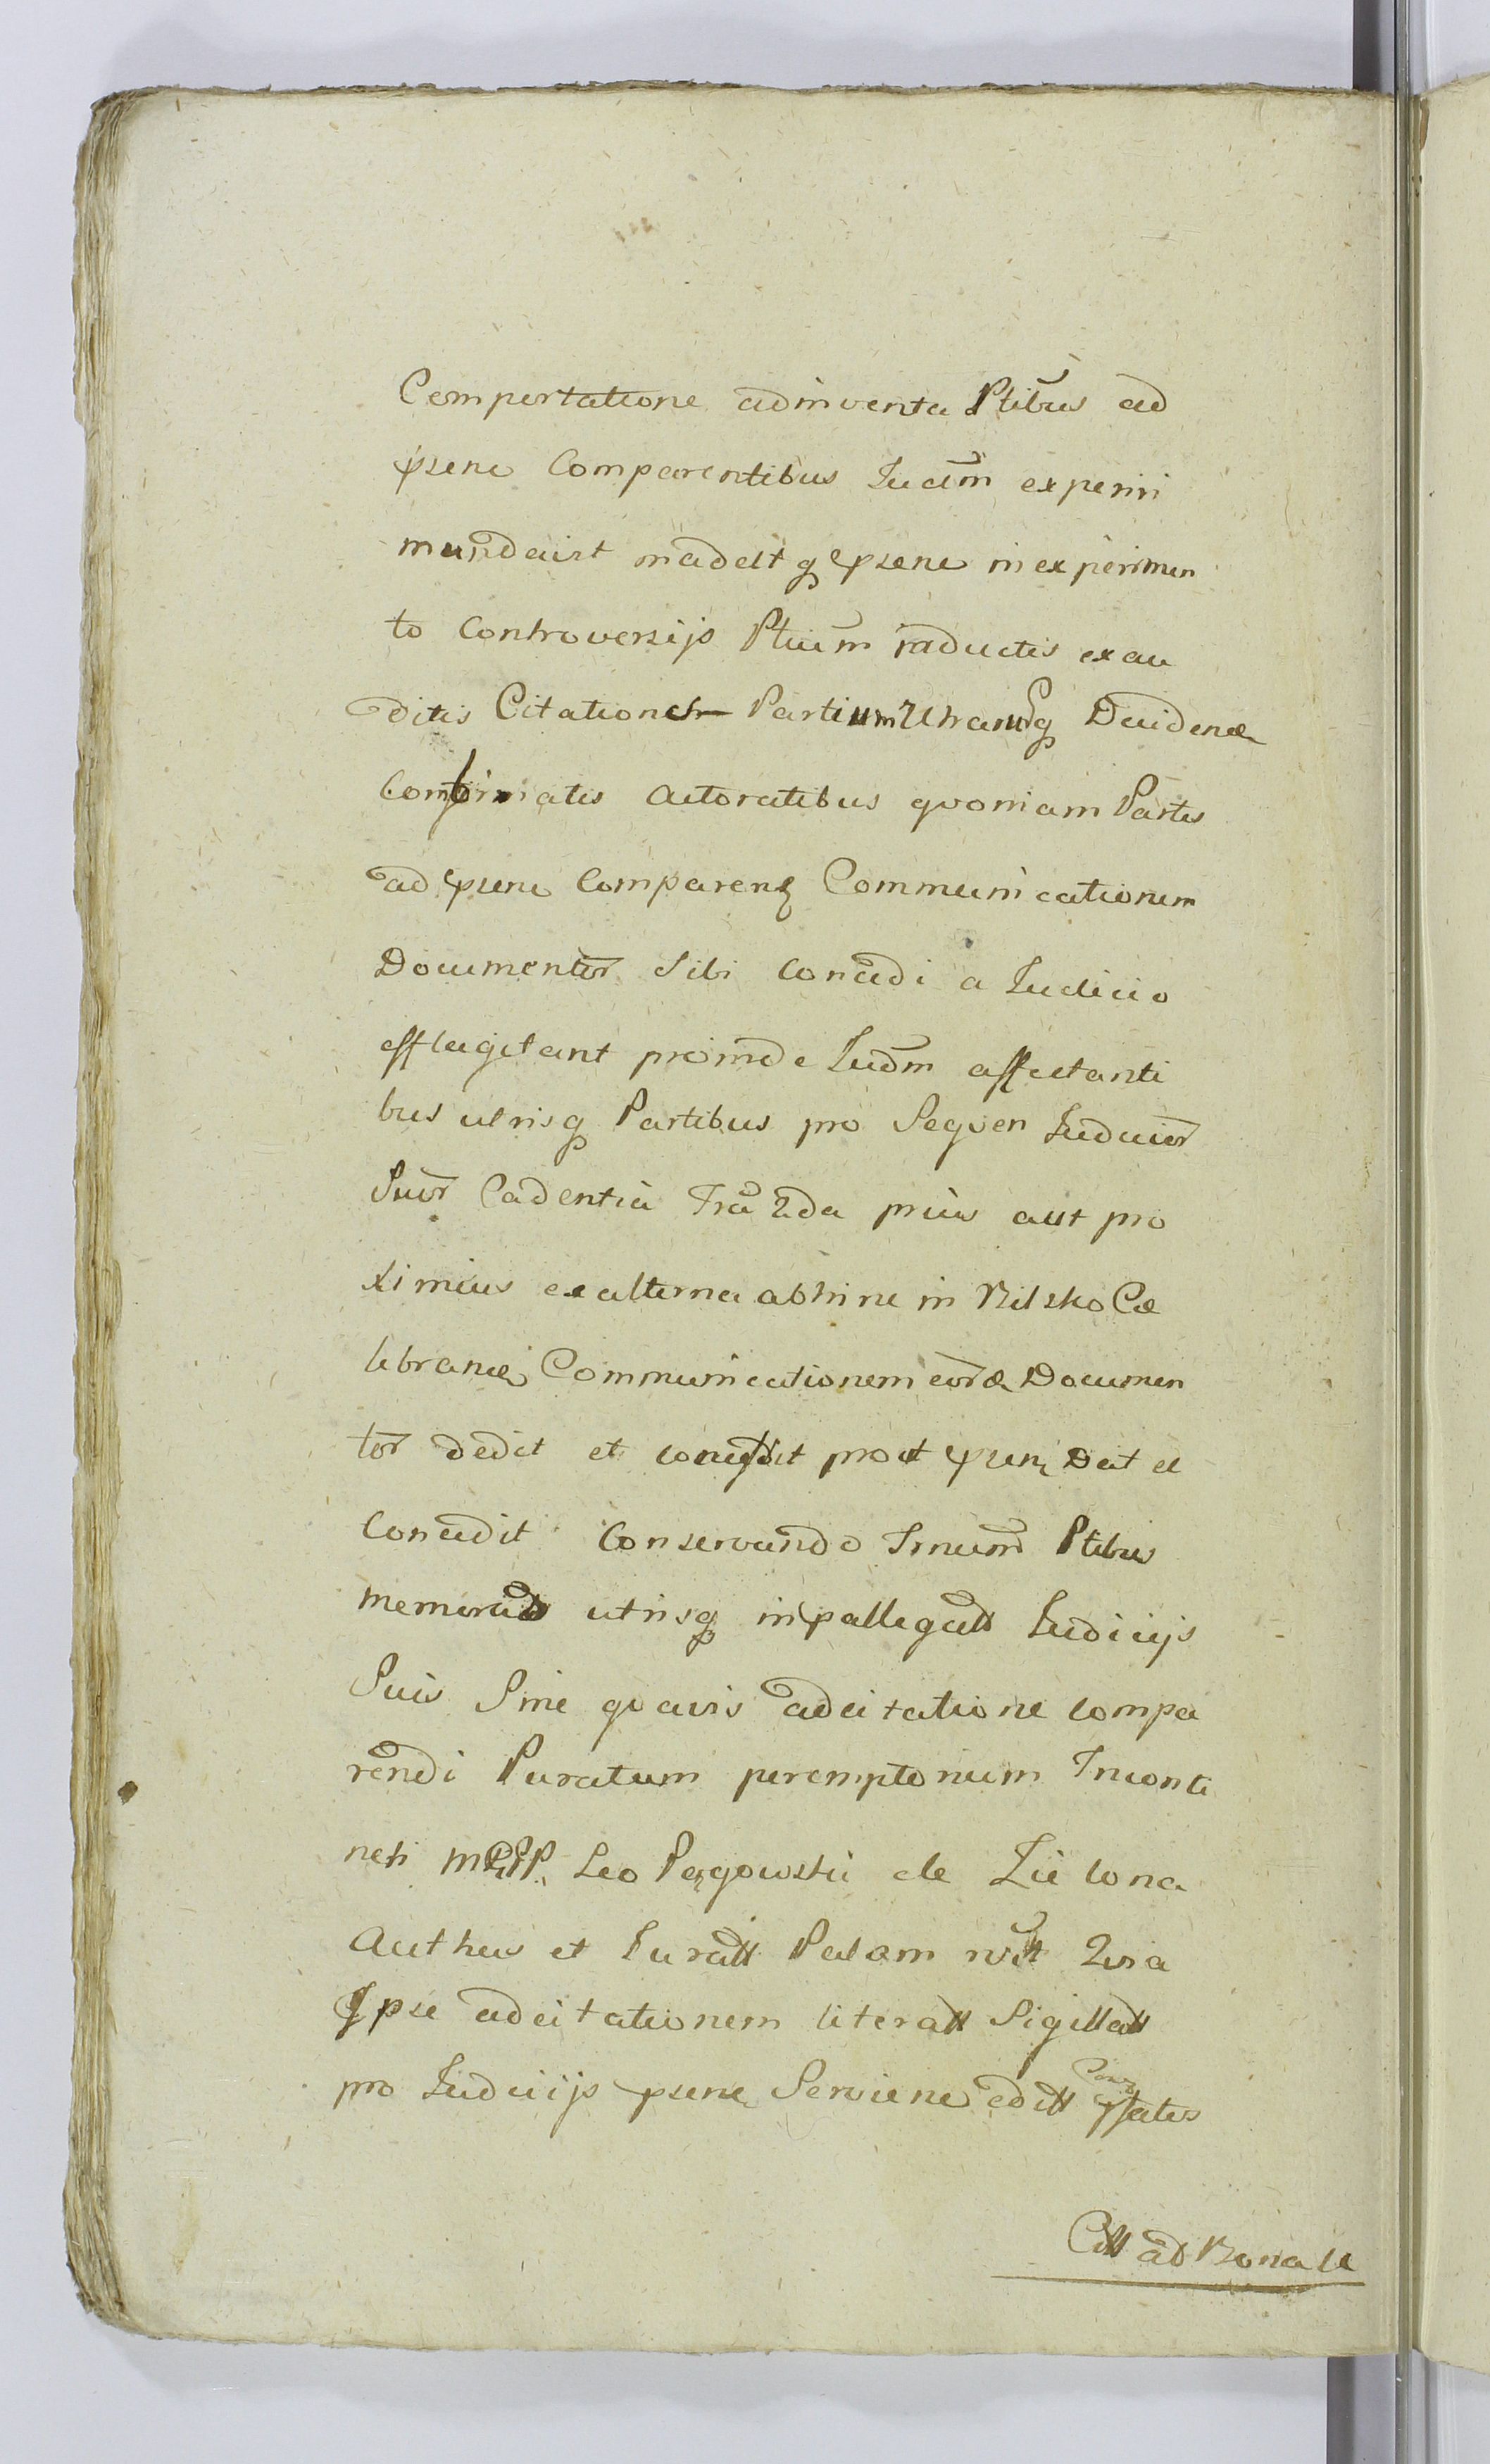 Comportatione adinventa Ptibus ad
psene Comparentibus Iudm experiri
mandavit madatq psene in experimen
to Controversijs Ptium inductis exau
ditis Citationes Partium Utramq Decidenca
Confirmatis actoratibus quoniam Partes
ad psene Comparenz Communicationem
Documentor Sibi Concedi a Iudicio
efflagitant proinde Iudm affectanti
bus utrisq Partibus pro Seqven Iudicior
Suor Cadentia Fra 2da prius aut pro
ximius ex alterna abhinc in Bilsko Ce
lebrance Communicationem eorda Documen
tor dedit et concessit prout psenz Dat et
Concedit Conservando Trnum Ptibus
memorats utrisq in pallegatt Iudicijs
Suis Sine qvavis adcitatione compa
rendi Paratum peremptorium Inconti
neti MRP Leo Pęgowski de Zielona
Authus et Iuratt Palam rvit Quia
Ipse adcitationem literatt Sigillatt
pro Iudicijs psene Serviene editt psatis
Citt ad Bona Se